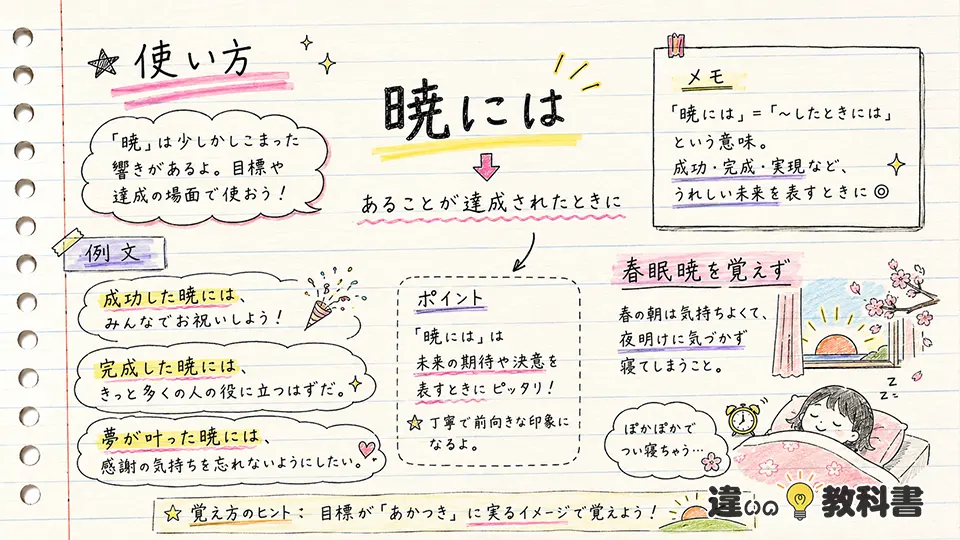 使い方
「暁」は少しかしこまった
響きがあるよ。目標や
達成の場面で使おう！
暁には
あることが達成されたときに
メモ
「暁には」=「～したときには」
という意味。
成功・完成・実現など、
うれしい未来を表すときに◎
例文
成功した暁には、
みんなでお祝いしよう！
完成した暁には、
きっと多くの人の役に立つはずだ。
夢が叶った暁には、
感謝の気持ちを忘れないようにしたい。
ポイント
「暁には」は
未来の期待や決意を
表すときにピッタリ！
☆丁寧で前向きな印象に
なるよ。
春眠暁を覚えず
春の朝は気持ちよくて、
夜明けに気づかず
寝てしまうこと。
ぽかぽかで
つい寝ちゃう…
z z z
☆覚え方のヒント：目標が「あかつき」に実るイメージで覚えよう！
違いの教科書